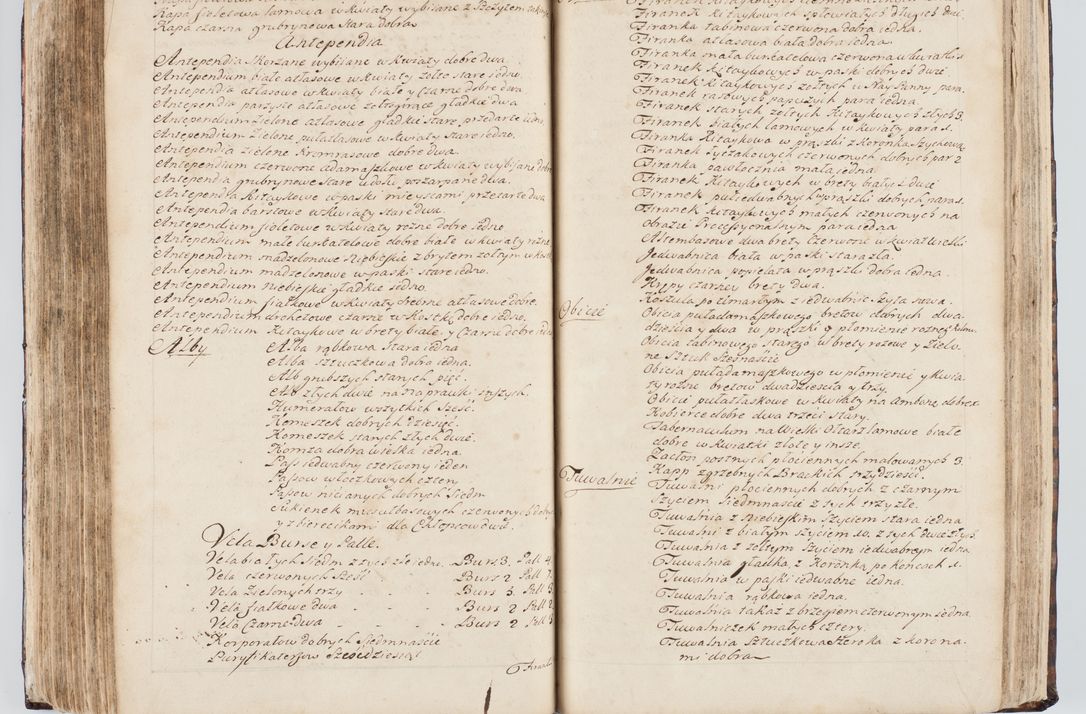 Kapa fioletowa lamowa w kwiaty wybijane z Szczytem
Kapa czarna grubrynowa Stara dobra
Antependia
Antependia Skorzane wybijane w kwiaty dobre dwa.
Antependium białe atłasowe w kwiaty zołte stare iedno.
Antependia atłasowe w kwiaty białe y Czarne dobre dwa
Antependia parzyste atłasowe zołtogrące gładkie dwa
Antependium Zielone atłasowe gładkie Stare, przedarte iedno
Antependium Zielone pułatłasowe w kwiaty Stare iedno.
Antependia zielone Kromrasowe dobre dwa.
Antependium czerwone adamaszkowe w kwiaty wybijane dobre
Antependia grubrynowe Stare u dołu poszarpane dwa.
Antependia Kitaykowe w paski mieyscami przetarte dwa
Antependia barsowe w kwiaty Stare dwa.
Antependium fioletowe w kwiaty rozne dobre iedno
Antependium małe buntatelowe dobre białe w kwiaty rozne
Antependium madzelonowe Niebieskie z brytem zołtym w kwiaty
Antependium madzelonowe w paski stare iedno.
Antependium niebieskie gładkie iedno.
Antependium fiałkowe w kwiaty srebrne atłasowe dobre.
Antependium drohetowe czarne w Kostkę dobre iedno.
Antependium Kitaykowe w brety białe y Czarne dobre iedno
Alby
Alba rąbkowa Stara iedna
Alba Sztuczkowa dobra iedna.
Alb grubszych starych pięć.
Alb złych dwie na Naprawki inszych.
Humerałow wszytkich Sześć.
Komeszek dobrych dziesięć.
Komeszek starych złych dwie.
Komza dobra wielka iedna
Pas iedwabny czerwony ieden
Pasow włoczkowych cztery
Pasow nicianych dobrych Siedm
Sukienek musułbasowych czerwonych dobre
y z bierecikami dla Chłopcow dwie.
Vela Burse y Palle.
Vela białych Siedm z tych złe iedno. Burs 3. Pall 4
Vela czerwonych Sześć Burs 2 Pall 7.
Vela Zielonych trzy Burs 3. Pall 3.
Vela fiałkowe dwa Burs 2 Pall 2.
Vela Czarne dwa Burs 2 Pall 3
Korporałow dobrych Siedmnaście
Puryfikaterzow Sześćdziesiąt
Firank
Firanka tabinowa czerwona dobra iedna.
Firanka atłasowa biała dobra iedna
Firanka mała buntatelowa czerwona
Firanek Kitaykowych w paski dobrych dwie
Firanek Kitaykowych zołtych u Nays Panny, para.
Firanek rasowych papuzych para iedna.
Firanek starych zołtych Kitaykowych złych 3.
Firanek białych lamowych w kwiaty para 1.
Firanka Kitaykowa w prązki z Koronką Szychową
Firanek Syczakowych czerwonych dobrych par 2
Firanka pawłocznia mała iedna
Firanek Kitaykowych w brety białych dwie
Firanek pułiedwabnych w prązki dobrych para 1.
Firanek Kitaykowych małych czerwonych na
obrazie Processyonalnym para iedna
Altembasowe dwa brety Czerwone w kwiat Wielki
Jedwabnica biała w paski stara zła.
Jedwabnica popielata w prązki dobra iedna.
Krepy czarney brety dwa.
Koszula po zmarłym z iedwabiem szyta nowa.
Obicie
Obicia puładamaszkowego bretow dobrych dwa-
dzieścia y dwa w prązki y płomienie rozney Koloru.
Obicia tabinowego Starego w brety rozowe y Zielo-
ne Sztuk Siedmnaście
Obicia puładamaszkowego w płomienie y kwia
ty rozne bretow dwadzieścia y trzy.
Obicie pułatłaskowe w kwiaty na ambone dobre
Kobierce dobre dwa trzeci Stary.
Tabernaculum na Wielki Ołtarz lamowe białe
dobre w kwiatki złote y insze.
Zasłon postnych płóciennych malowanych 3.
Kapp zgrzebnych Brackich trzydzieści.
Tuwalnie
Tuwalni płociennych dobrych z czarnym
szyciem Siedmnaście z tych trzy złe.
Tuwalnia z Niebieskim Szyciem stara iedna
Tuwalni z białym szyciem 10. z tych dwie złych
Tuwalnia z zołtym Szyciem iedwabnym iedna
Tuwalnia gładka, z Koronką po końcach 1.
Tuwalnia w paski iedwabne iedna.
Tuwalnia rąbkowa iedna.
Tuwalnia takaż z brzegiem czerwonym iedna
Tuwalniczek małych cztery.
Tuwalnia Sztuczkowa Szeroka z korona-
mi dobra